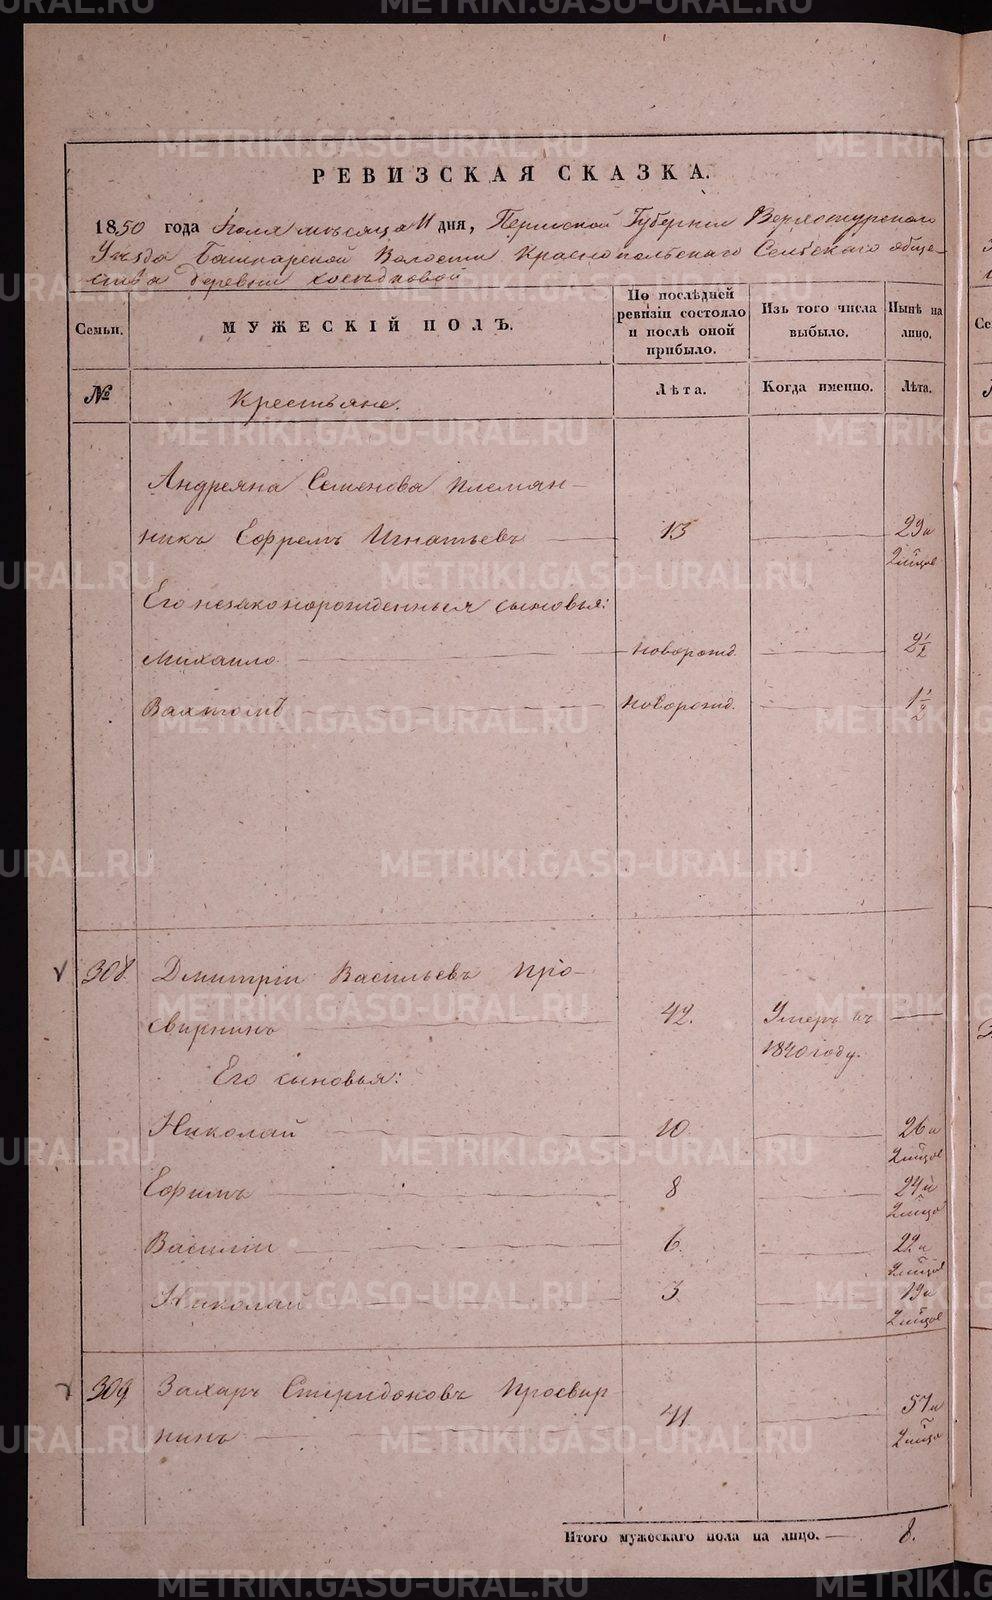 РЕВИЗСКАЯ СКАЗКА.
1850 года Іюля мѣсяца 11 дня, Пермской Губерніи Верхотурскаго
Уѣзда Башкарской Волости Краснопольскаго Сельскаго обще-
ства деревни
Семьи.
МУЖЕСКІЙ ПОЛЪ.
По послѣдней ревизіи состояло и послѣ оной прибыло.
Изъ того числа выбыло.
Нынѣ на лицо.
№
Крестьяне.
Лѣта.
Когда именно.
Лѣта.
Андреяна Семенова племян-
никъ Ефремъ Игнатьевъ 13 29 и
2 мѣсяц
Его незаконорожденныя сыновья:
Михаило новорожд. 2 1/2
новорожд. 1 1/2
308. Дмитрій Васильевъ Про-
свирнинъ 42. Умеръ въ
1840 году.
Его сыновья:
Николай 10 26 и
2 мѣсяц
Ефимъ 8 24 и
2 мѣсяц
Василій 6. 22 и
2 мѣсяц
Николай 3 19 и
2 мѣсяц
309 Захаръ Спиридоновъ Просвир-
нинъ 41 57 и
2 мѣсяц
Итого мужескаго пола на лицо. 8.
METRIKI.GASO-URAL.RU